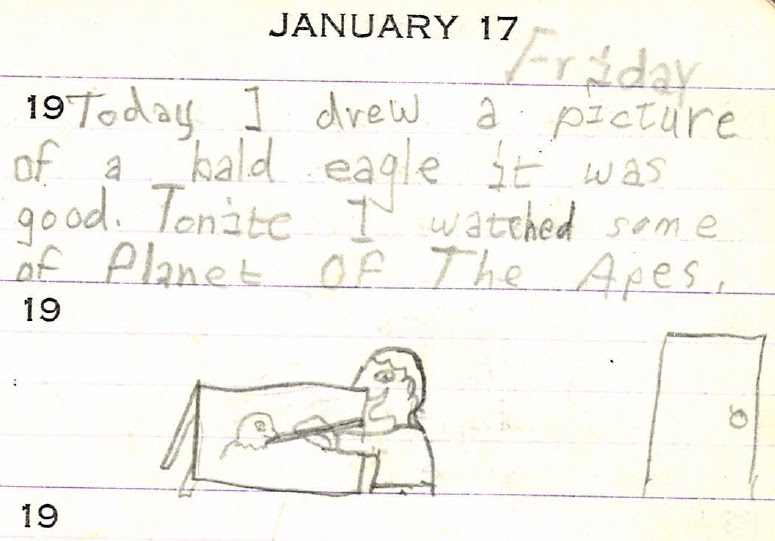 JANUARY 17
Friday
19 Today I drew a picture
of a bald eagle it was
good. Tonite I watched some
of Planet OF The Apes.
19
19